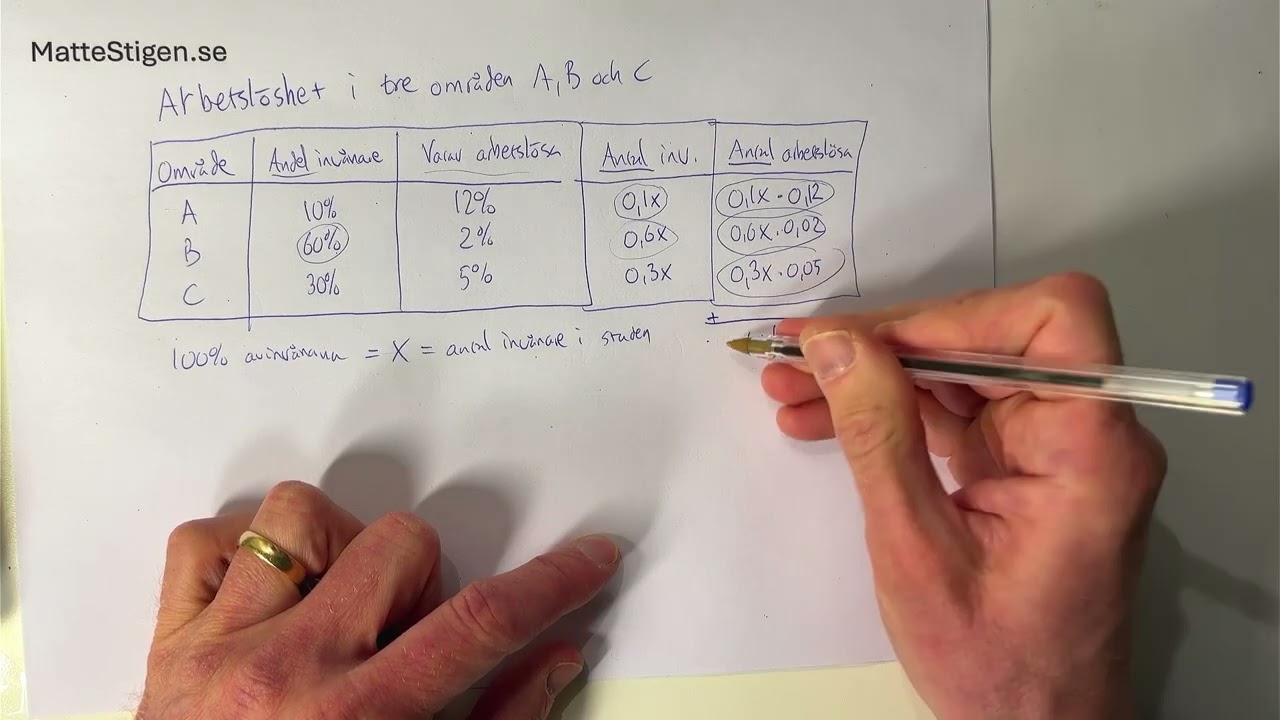 MatteStigen.se
Arbetslöshet i tre områden A, B och C
Område Andel invånare Varav arbetslösa Antal inv. Antal arbetslösa
A 10% 12% 0,1x 0,1x · 0,12
B 60% 2% 0,6x 0,6x · 0,02
C 30% 5% 0,3x 0,3x · 0,05
+
100% av invånarna = X = antal invånare i staden